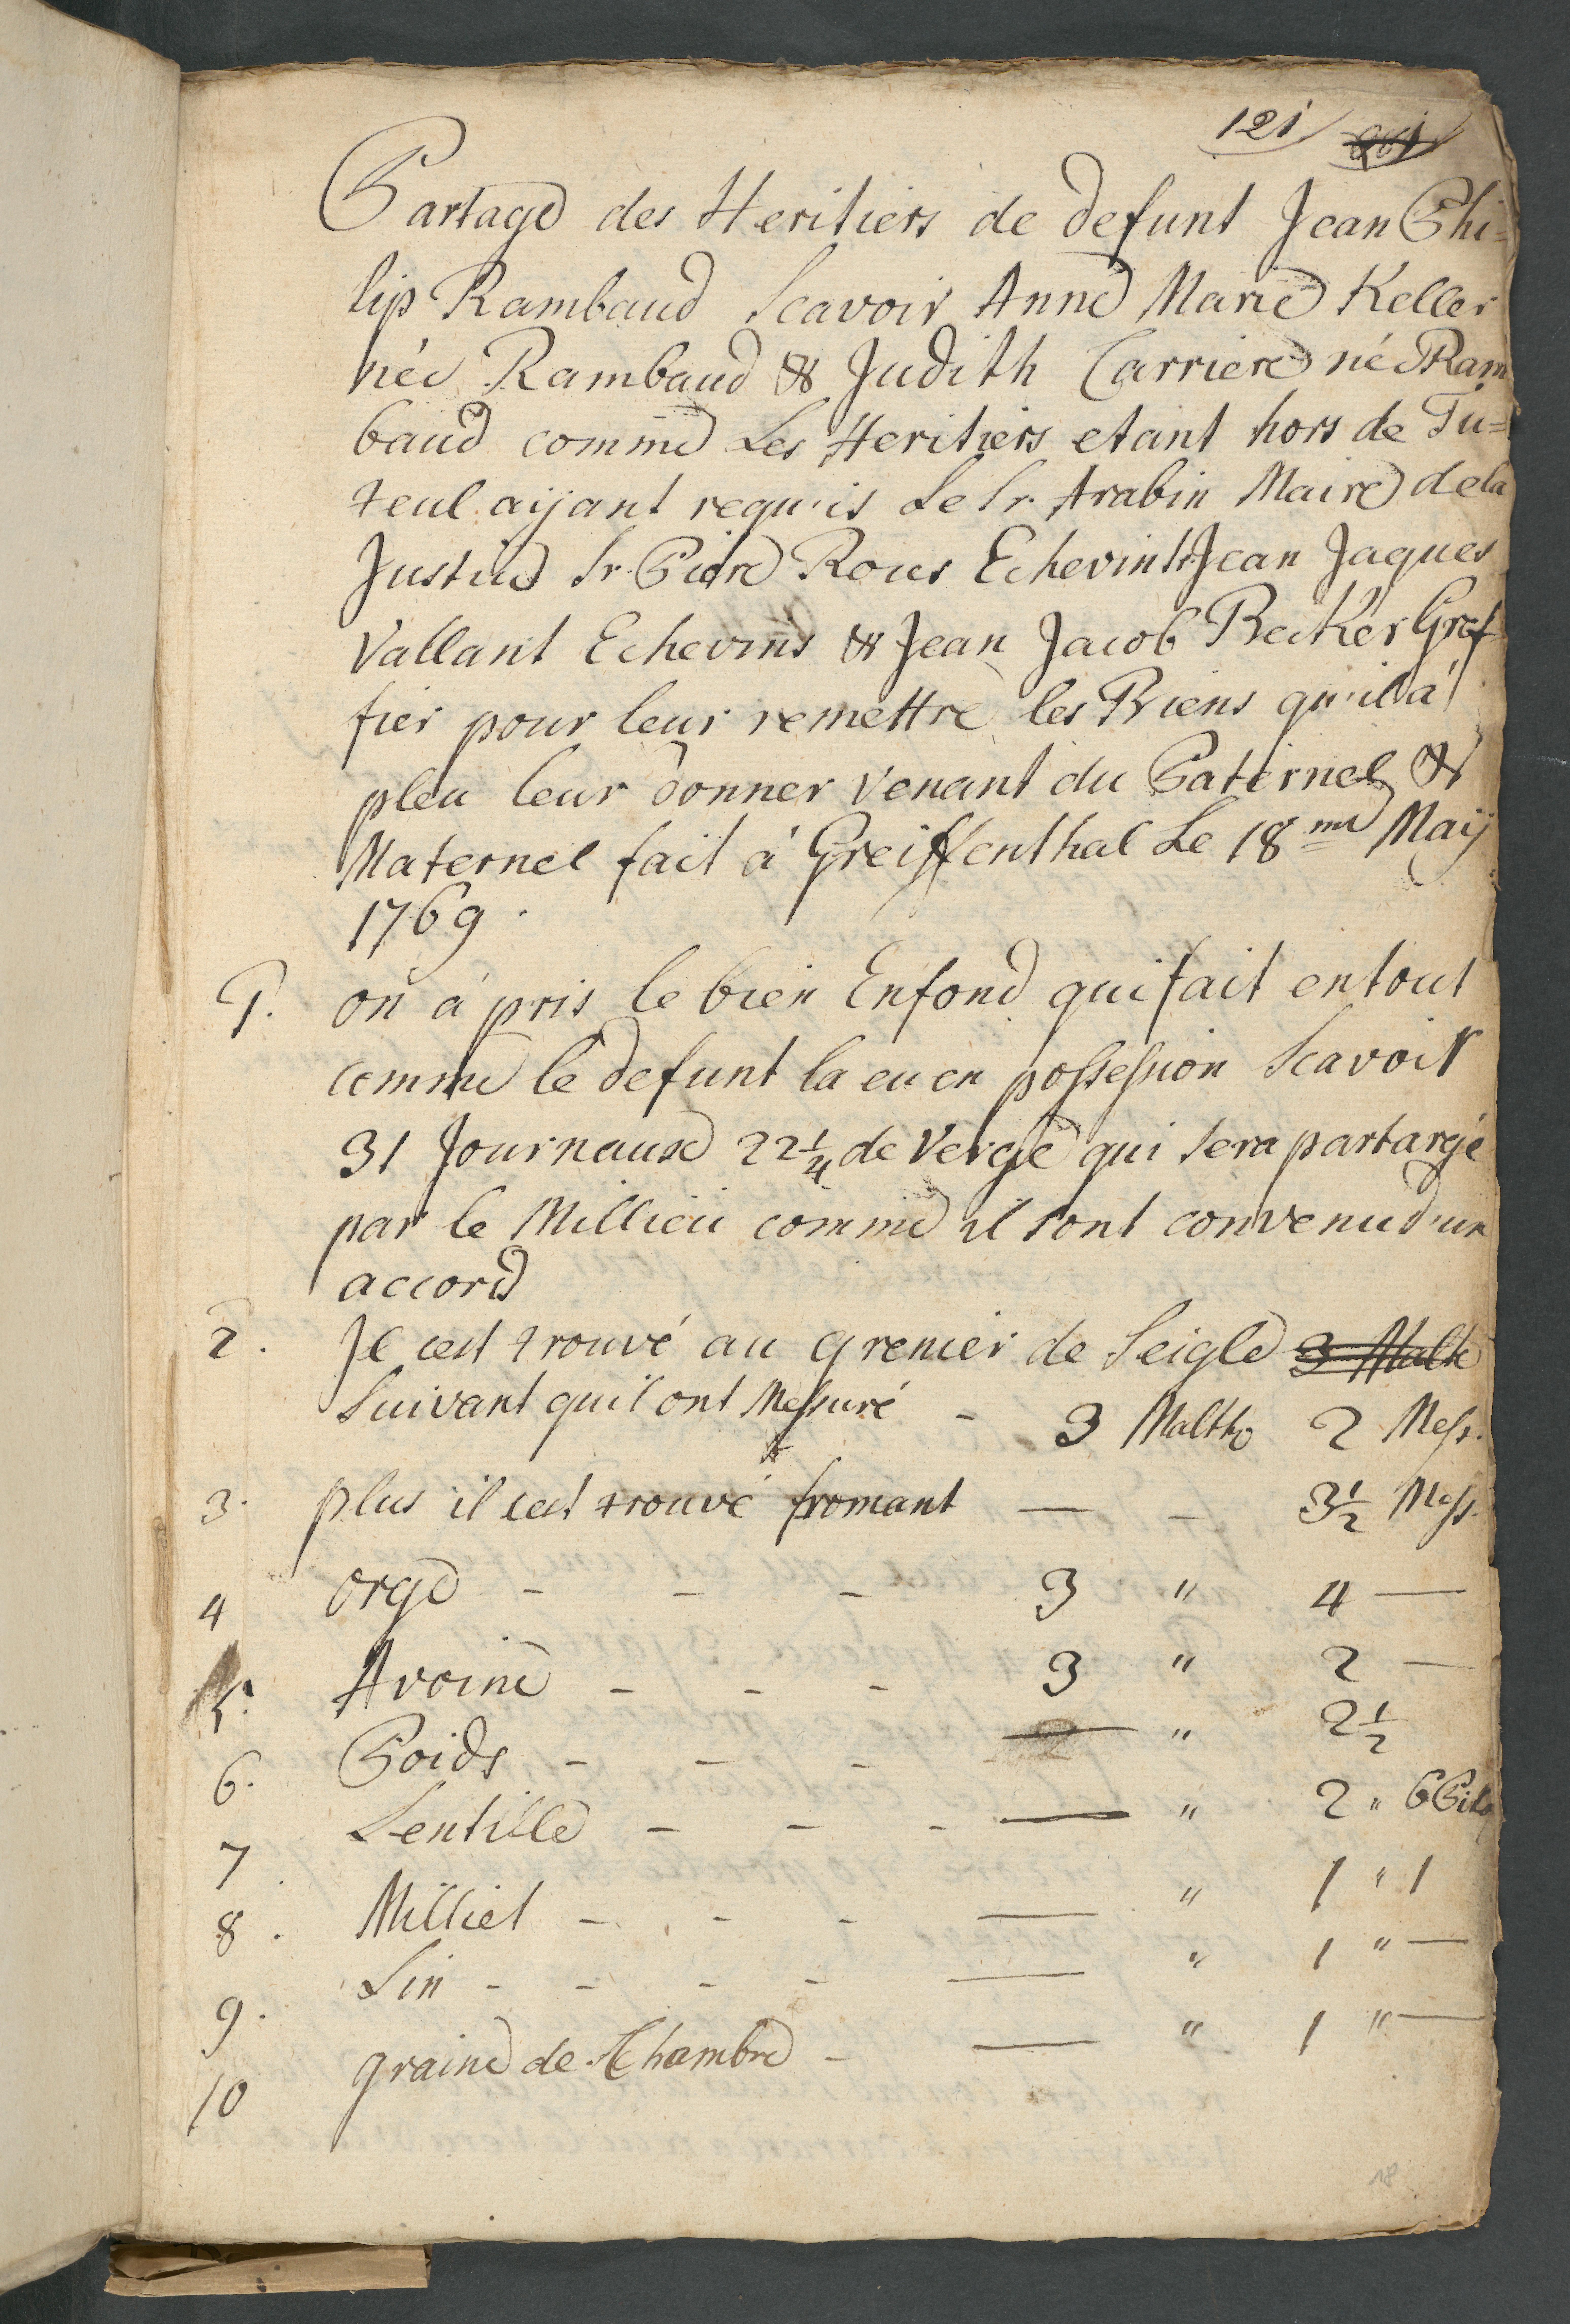 121
Partage des Heritiers de defunt Jean Phi=
lip Rambaud Scavoir Anne Marie Keller
née Rambaud & Judith Carriere né Ram
baud comme Les Heritiers etant hors de Tu=
teul aijant requis Le Sr. Arabin Maire de la
Justice Sr. Piere Roux Echevin Sr. Jean Jaques
Vallant Echevins & Jean Jacob Becker Gref
fier pour leur remettre les Biens qu'il a'
pleu leur donner venant du Paternel &
Maternel fait á Greiffenthal Le 18me Maij
1769.
1. on á pris le bien Enfond qui fait en tout
comme le defunt la eu en possession Scavoir
31 Journaux 22 1/4 de Verge qui sera partargé
par le Millieu comme il sont convenu d'un
accord
2. Il cest trouvé au grenier de Seigle 3 Malte
Suivant quil ont Messuré - 3 Malth 2 Mess.
3. plus il cest trouvé fromant — - 3 1/2 Mess.
4 orge - - - 3 " 4 —
5. Avoine - - - 3 " 2 —
6. Poids - - - - — " 2 1/2
7. Lentille - - - — " 2 "
8. Milliet - - - — " 1 " 1
9. Lin - - - - — " 1 " —
10 graine de Chambre - — " 1 " —
18